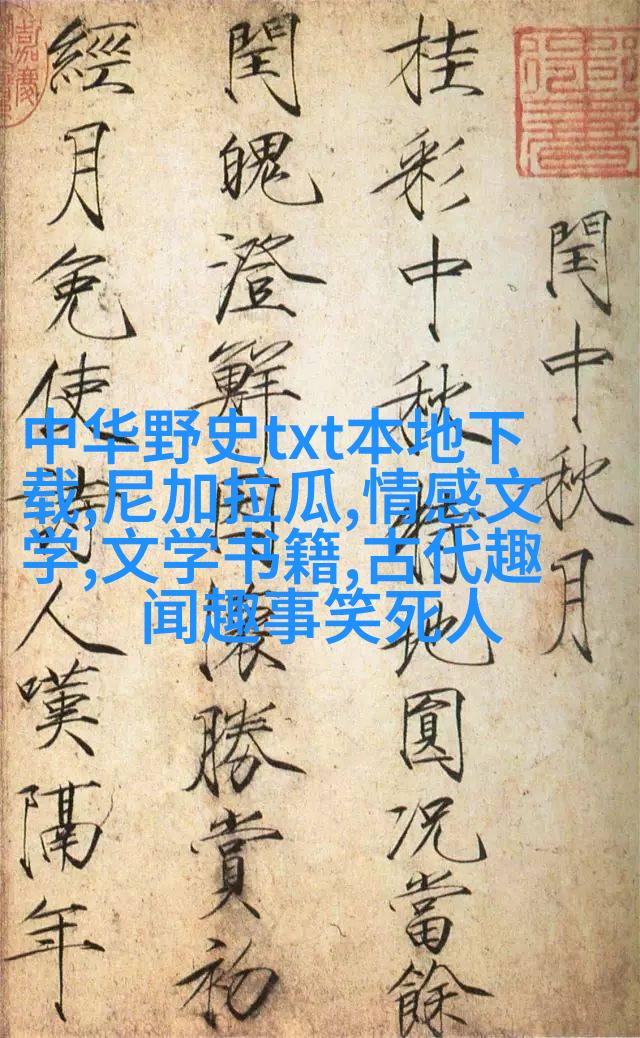 閏中秋月
桂彩中秋特地圓況當餘
閏魄澄鮮因懷勝賞初
經月免使詩人嘆隔年
中华野史txt本地下
载,尼加拉瓜,情感文
学,文学书籍,古代趣
闻趣事笑死人
嘉慶